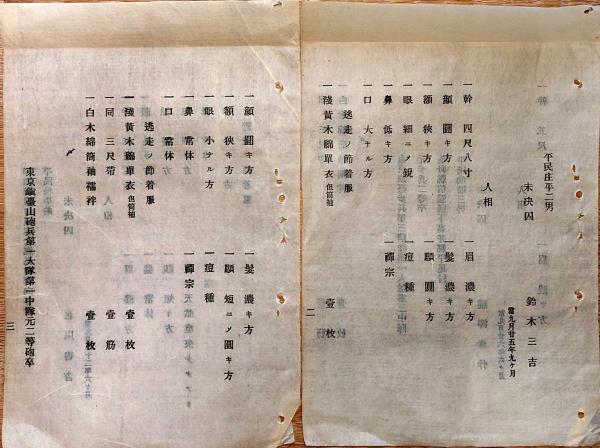 平民庄平二男
未決囚 鈴木三吉
當九月廿五年九ヶ月
人相
一幹 四尺八寸 一眉 濃キ方
一顏 圓キ方 一髮 濃キ方
一額 狹キ方 一頤 圓キ方
一眼 細ニノ銳 一痘 種
一鼻 低キ方 一禪宗
一口 大ナル方
逃走ノ節着服
一淺黃木綿單衣 但筒袖 壹枚
二
一顏 圓キ方 一髮 濃キ方
一額 狹キ方 一頤 短ニノ圓キ方
一眼 小ナル方 一痘 種
一鼻 常体 一禪宗
一口 常体
逃走ノ節着服
一淺黃木綿單衣 但筒袖 壹枚
一同 三尺帶 壹筋
一白木綿筒袖襦袢 壹枚
東京鎭臺山砲兵第一大隊第一中隊元二等砲卒
三